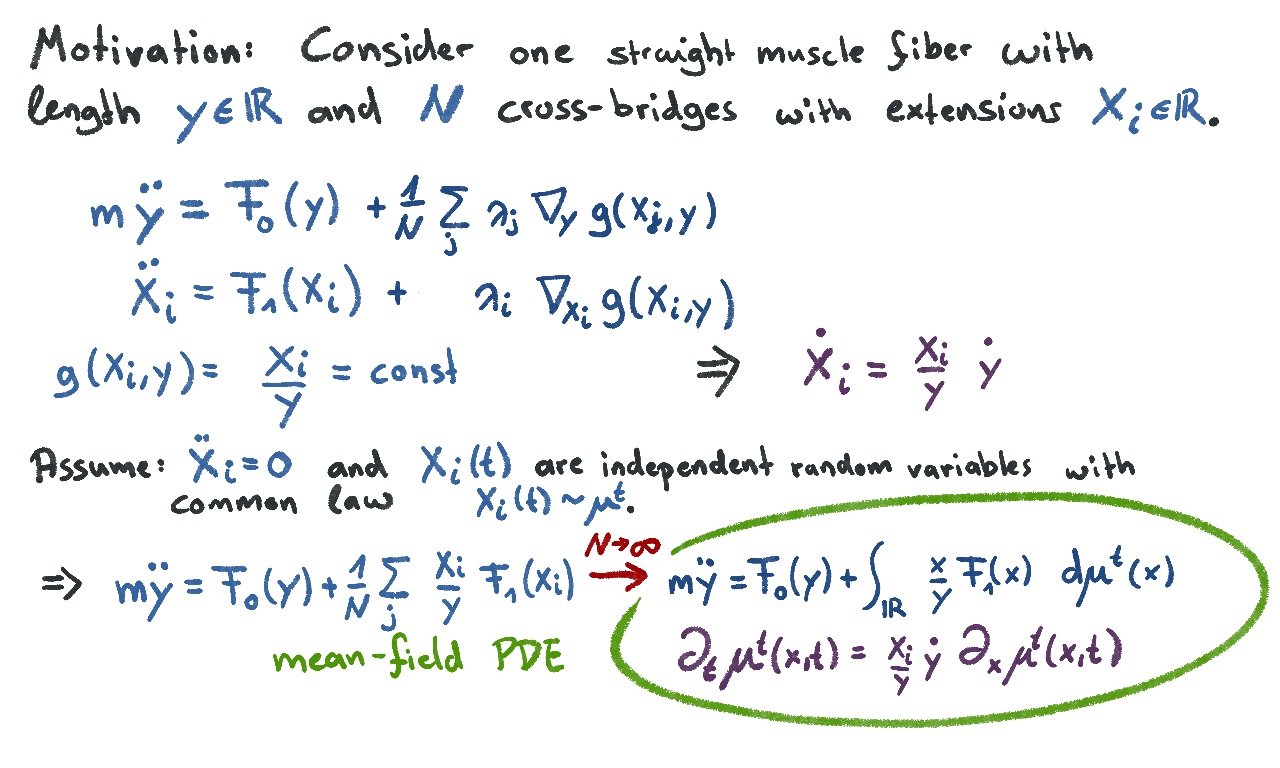 Motivation: Consider one straight muscle fiber with
length y ∈ ℝ and N cross-bridges with extensions Xᵢ ∈ ℝ.
m ÿ = F₀(y) + 1/N ∑ⱼ λⱼ ∇y g(Xⱼ, y)
Ẍᵢ = F₁(Xᵢ) + λᵢ ∇Xᵢ g(Xᵢ, y)
g(Xᵢ, y) = Xᵢ/y = const ⇒ Ẋᵢ = Xᵢ/y ẏ
Assume: Ẍᵢ = 0 and Xᵢ(t) are independent random variables with
common law Xᵢ(t) ~ μᵗ.
⇒ mÿ = F₀(y) + 1/N ∑ⱼ Xᵢ/y F₁(Xᵢ) N→∞ → mÿ = F₀(y) + ∫ℝ x/y F₁(x) dμᵗ(x)
mean-field PDE ∂ₜμᵗ(x,t) = Xᵢ/y ẏ ∂ₓμᵗ(x,t)